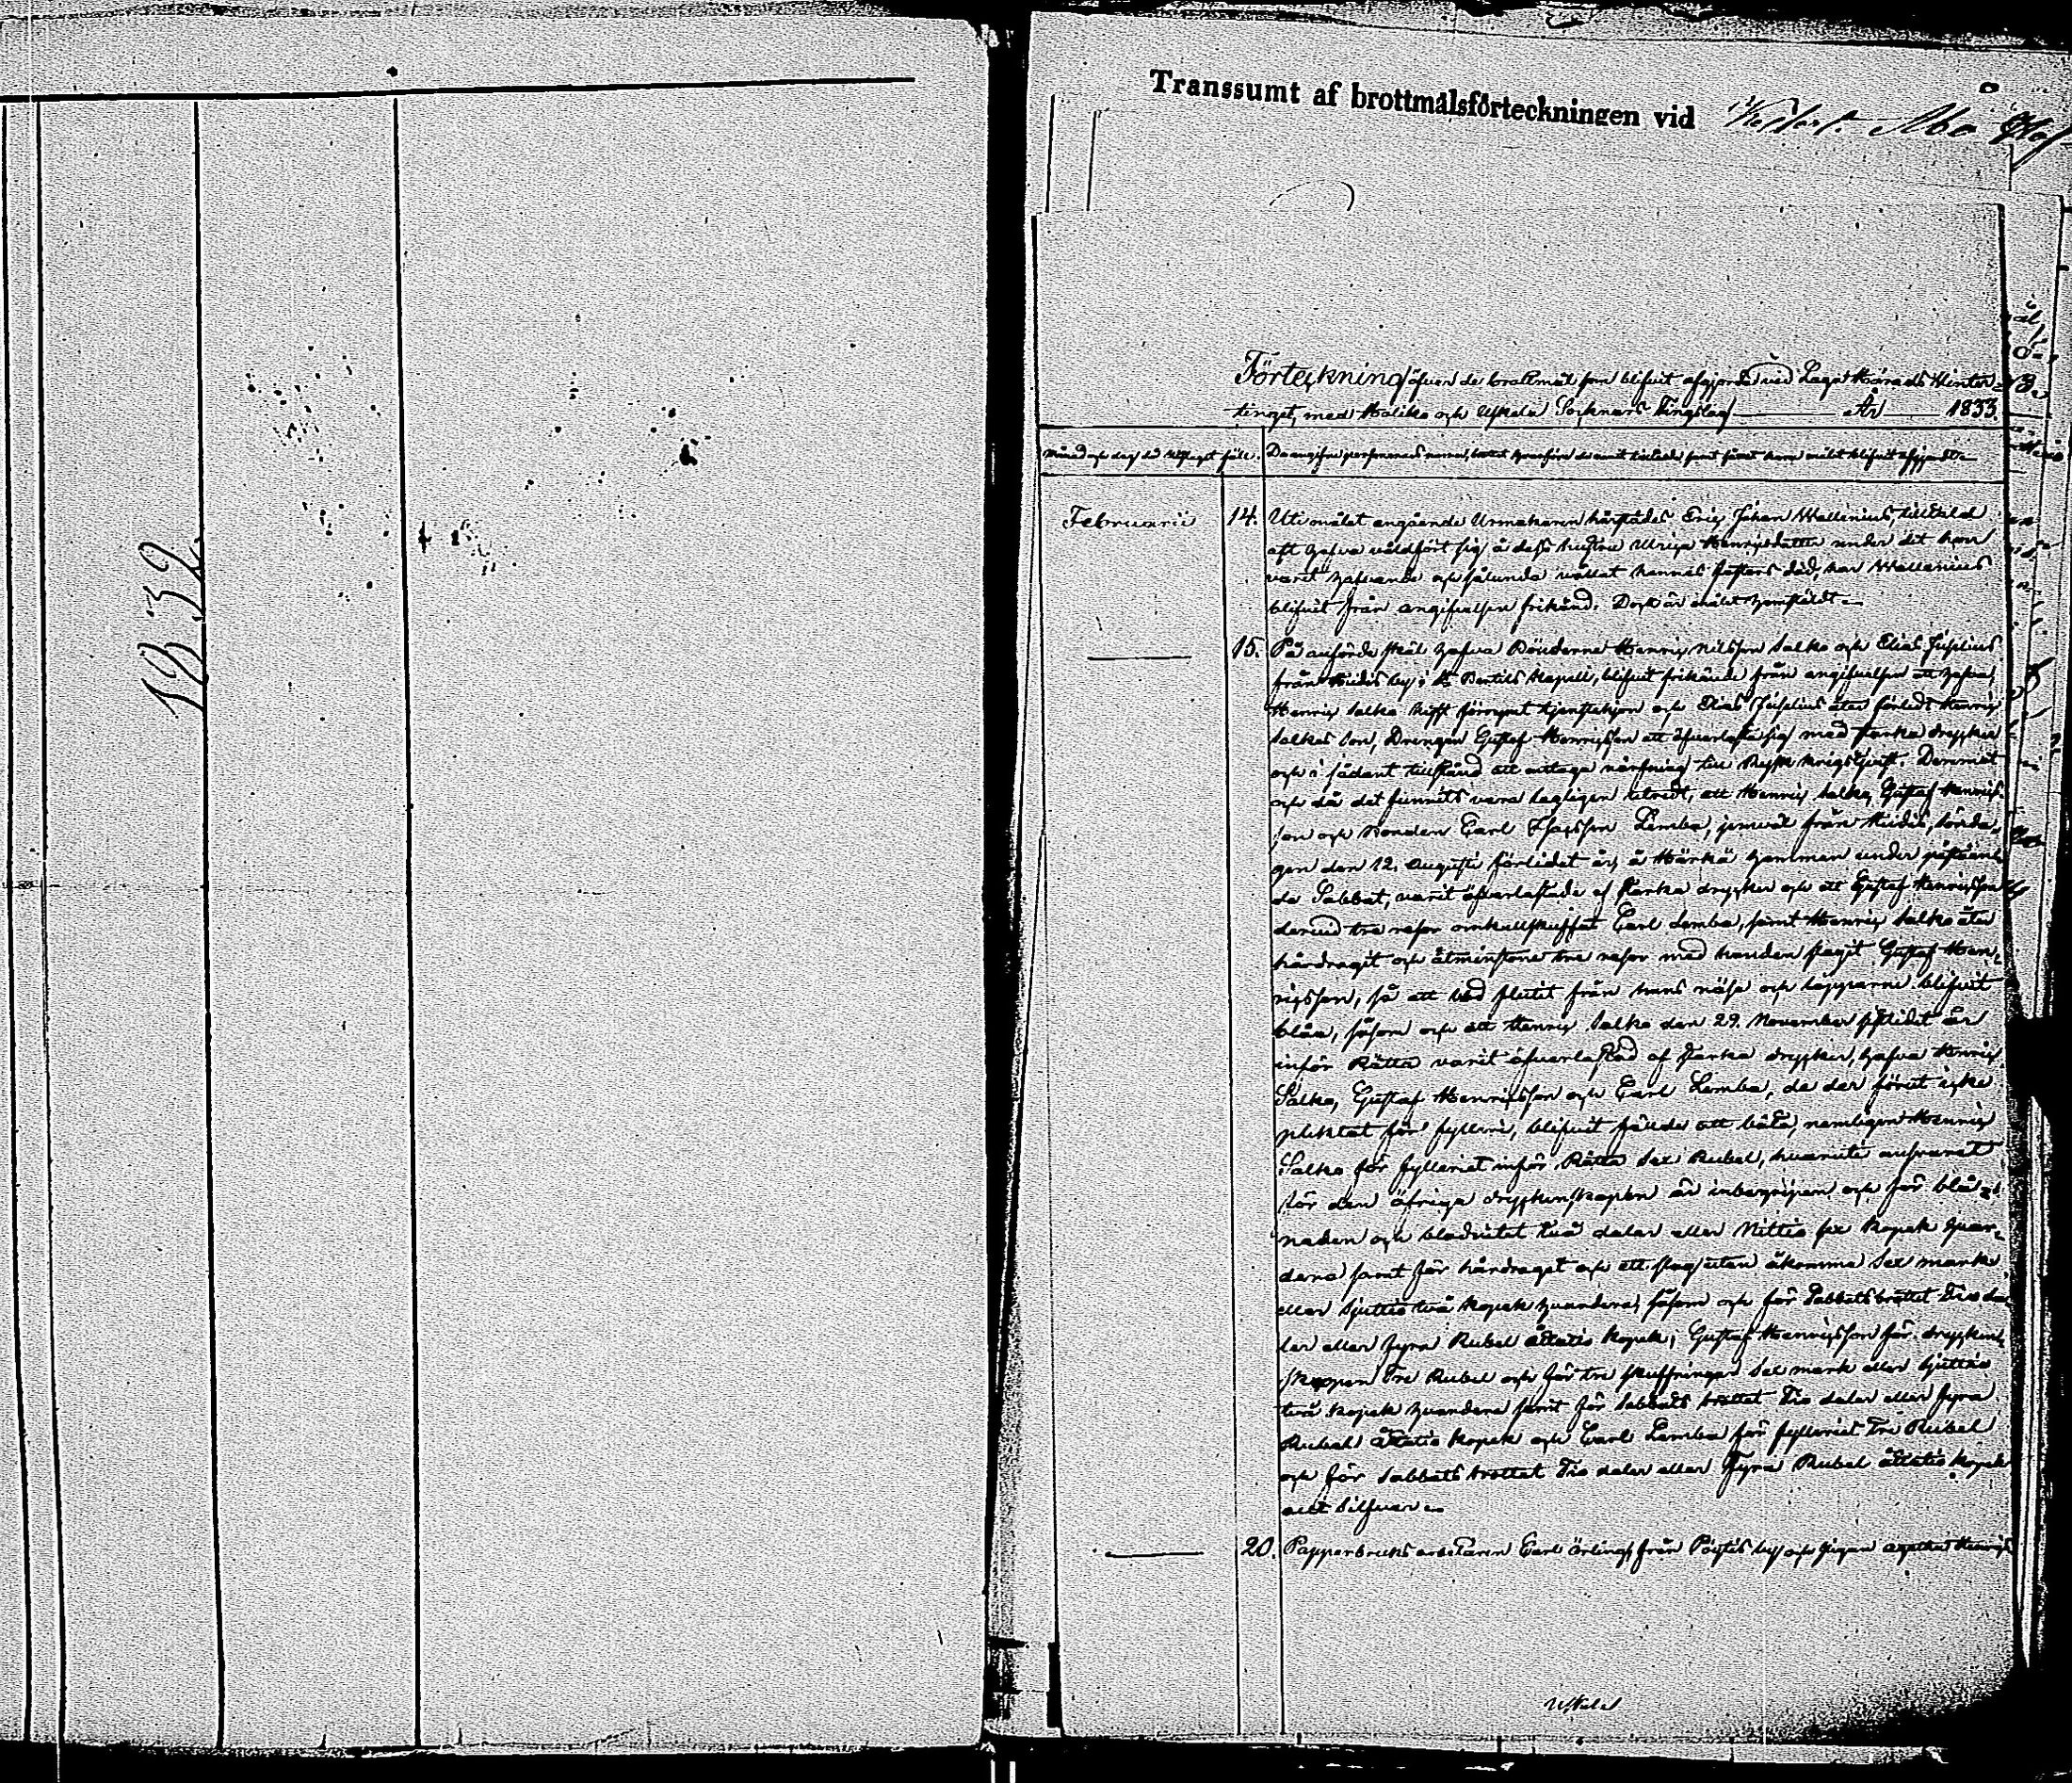 1832
Transsumt af brottmålsförteckningen vid Åbo
Förteckning öfver de brottmål som blifvit afgjorda vid Laga Härads Winter-
tinget med Haliko och Uskela Socknars Tingslag År 1833.
Månad och dag då utslaget fallit. De angifne personernes namn, brottet hvarföre de varit tilltalade samt huru målet blifvit afgjordt.
Februarii 14. Uti målet angående Urmakaren härstädes Eric Johan Wallenius, tilltalad
att hafva våldfört sig å dess hustru Ulrica Henricsdotter under det hon
varit hafvande och sålunda vållat hennes fosters död, har Wallenius
blifvit från angifvelsen frikänd. Dock är målet hemstäldt.
15. På anförde skäl hafva Bönderne Henric Nilsson Salko och Elias
från by i St Bertils Kapell, blifvit frikände från angifvelsen att hafva,
Henric Salko och Elias åter förledt Henric
Salkos son, Drengen Gustaf Henricsson att öfverlasta sig med starka drycker
och i sådant tillstånd att antaga värfning till Rysk Krigstjenst. Deremot
och då det funnits vara lagligen utredt, att Henric Salko, Gustaf Henrics-
son och Bonden Carl Isacsson Lemba, jemväl från sönda-
gen den 12. Augusti förlidet år, å Härkä hemman under påståen-
de Sabbat, varit öfverlastade af starka drycker och att Gustaf Henricsson
dervid tre resor omkullskuffat Carl Lemba, samt Henric Salko åter
hårdragit och åtminstone tre resor med handen slagit Gustaf Hen-
ricsson, så att blod flutit från hans näsa och läpparne blifvit
blåa, såsom ock att Henric Salko den 29. November sistlidet år
inför Rätta varit öfverlastad af starka drycker, hafva Henric
Salko, Gustaf Henricsson och Carl Lemba, de der förut icke
pliktat för fylleri, blifvit fällde att böta, nemligen Henric
Salko för fylleriet inför Rätta Sex Rubel, hvaruti ansvaret
för den öfriga dryckenskapen är inbegripen och för blå-
naden och blodvitet två daler eller Nittio sex kopek hvar-
dera samt för hårdraget och ett slag utan åkomma Sex mark
eller Sjuttio två kopek hvardera, såsom ock för Sabbatsbrottet Tio da-
ler eller fyra Rubel åttatio kopek; Gustaf Henricsson för drycken-
skapen Tre Rubel och för tre skuffningar Sex mark eller Sjuttio
två kopek hvardera samt för Sabbats brottet Tio daler eller fyra
Rubel åttatio kopek och Carl Lemba för fylleriet Tre Rubel
och för Sabbats brottet Tio daler eller Fyra Rubel åttatio kopek
allt Silfver.
20. Pappersbruks arbetaren Carl Örling från by och pigan Agatha Henrics
Uskela